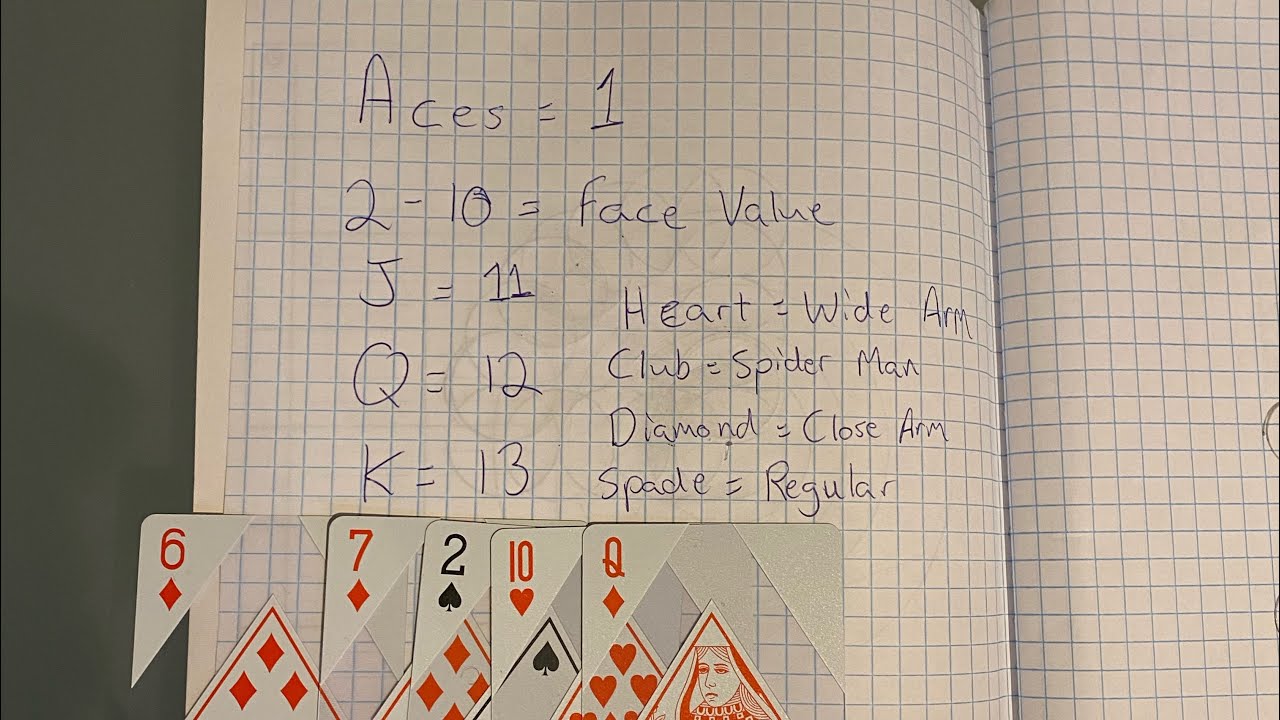 Aces = 1
2 - 10 = face Value
J = 11
Heart = Wide Arm
Q = 12
Club = Spider Man
Diamond = Close Arm
K = 13
Spade = Regular
6 7 2 10 Q